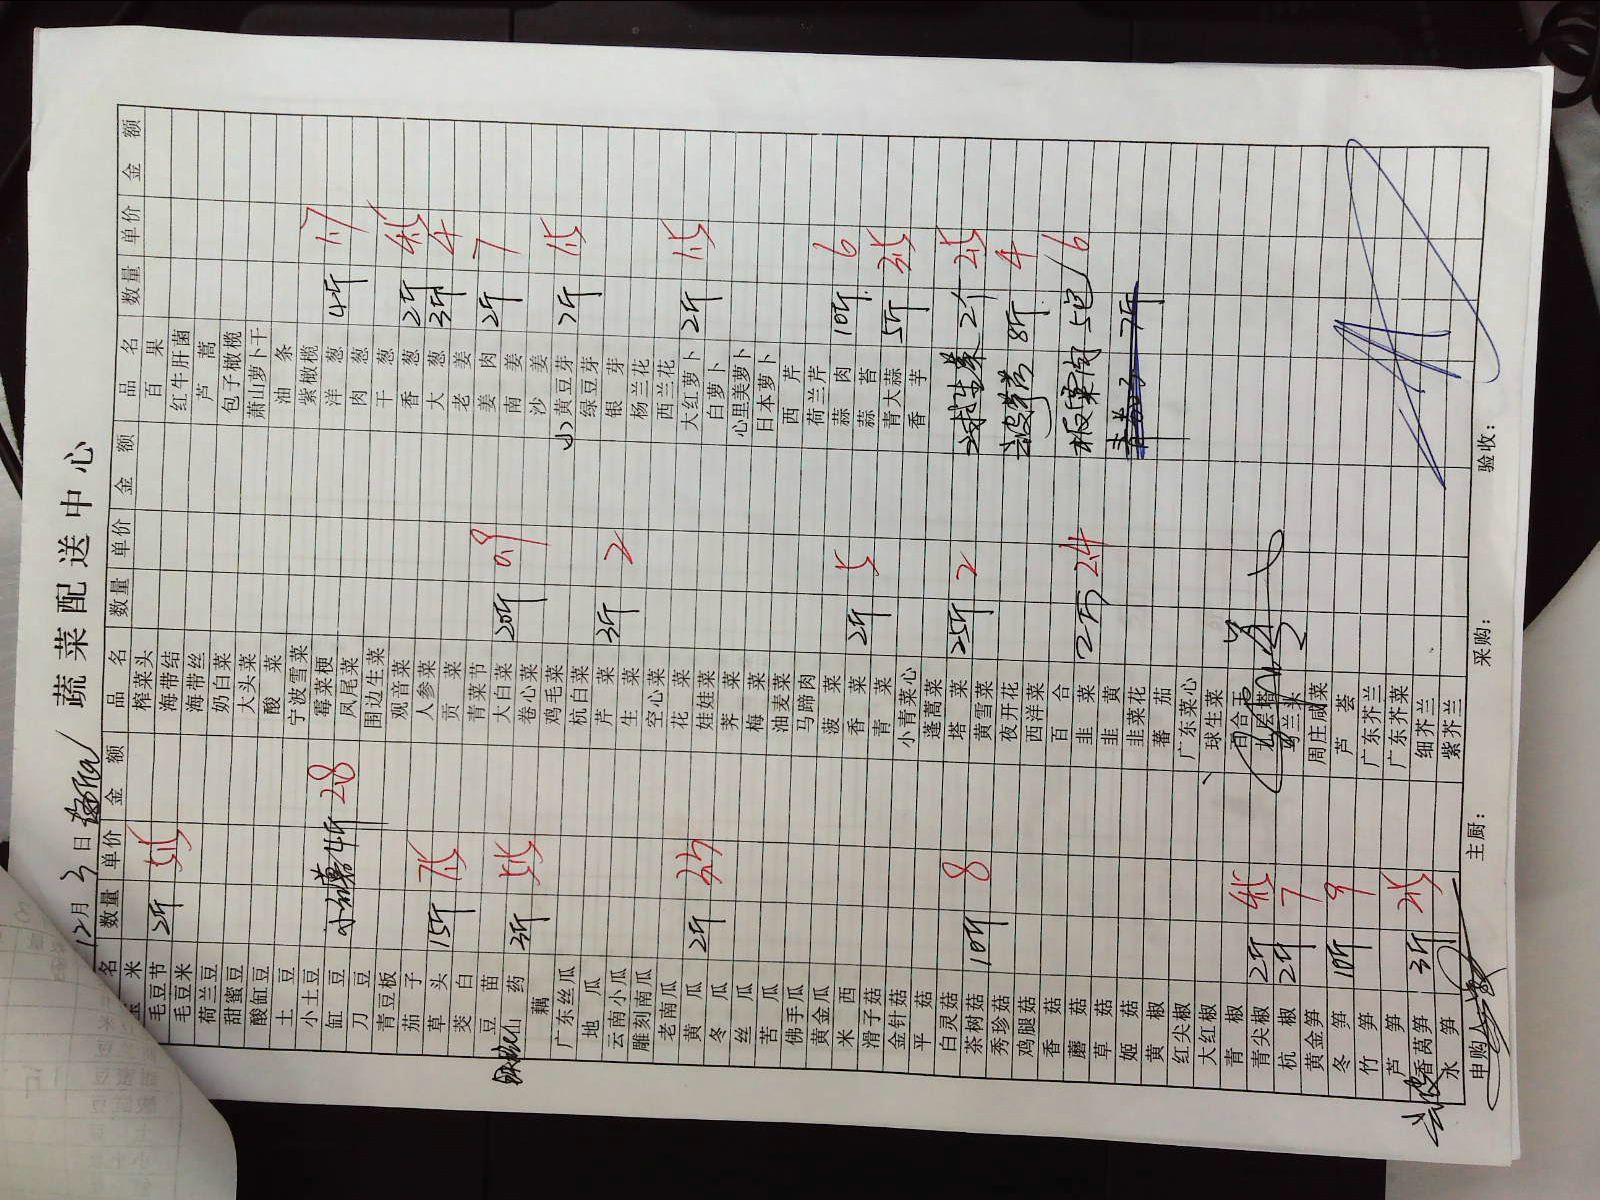 蔬菜配送中心
12月3日
品名 数量 单价 金额 品名 数量 单价 金额 品名 数量 单价 金额
玉米 榨菜头 百果
毛豆节 2斤 5.5 海带结 红牛肝菌
毛豆米 海带丝 芦蒿
荷兰豆 奶白菜 包子橄榄
甜蜜豆 大头菜 萧山萝卜干
酸缸豆 酸菜 油条
土豆 宁波雪菜 紫橄榄
小土豆 霉菜梗 洋葱 4斤 1.7
缸豆 4斤 28 凤尾菜 肉葱
刀豆 围边生菜 干葱
青豆板 观音菜 香葱 2斤 4.5
茄子 人参菜 大葱 3斤 4
草头 15斤 7.5 贡菜 老姜
茭白 青菜节 姜肉 2斤 7
豆苗 大白菜 20斤 0.9 南姜
山药 3斤 5.5 卷心菜 沙姜
藕 鸡毛菜 小黄豆芽 7斤 1.5
广东丝瓜 杭白菜 绿豆芽
地瓜 芹菜 3斤 2 银芽
云南小瓜 生菜 杨兰花
雕刻南瓜 空心菜 西兰花
老南瓜 花菜 大红萝卜 2斤 1.5
黄瓜 2斤 3.5 娃娃菜 白萝卜
冬瓜 荠菜 心里美萝卜
丝瓜 梅菜 日本萝卜
苦瓜 油麦菜 西芹
佛手瓜 马蹄肉 荷兰芹
黄金瓜 菠菜 蒜肉 10斤 6
米西 香菜 2斤 5 蒜苔
滑子菇 青菜 青大蒜 5斤 3.5
金针菇 小青菜心 香芋
平菇 蓬蒿菜
白灵菇 塔菜 25斤 2 球生菜 2个 2.5
茶树菇 10斤 8 黄雪菜
秀珍菇 夜开花 8斤 4
鸡腿菇 西洋菜
香菇 百合 板栗肉 5包 16
蘑菇 韭菜 2斤 2.4
草菇 韭黄 7斤
姬菇 韭菜花
黄椒 蕃茄
红尖椒 广东菜心
大红椒 球生菜
青椒 百合干
青尖椒 2斤 4.5 九层塔
杭椒 2斤 7 马兰头
黄金笋 周庄咸菜
冬笋 10斤 9 芦荟
竹笋 广东芥兰
芦笋 广东芥菜
香莴笋 3斤 2.5 细芥兰
水笋 紫芥兰
申购人： 主厨： 采购： 验收：